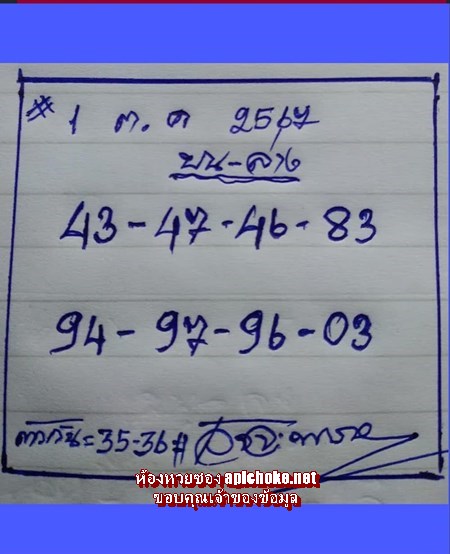 # 1 ต.ค 2567
บน-ล่าง
43-47-46-83
94-97-96-03
=35-36#
ห้องหวยซอง apichoke.net
ขอบคุณเจ้าของข้อมูล